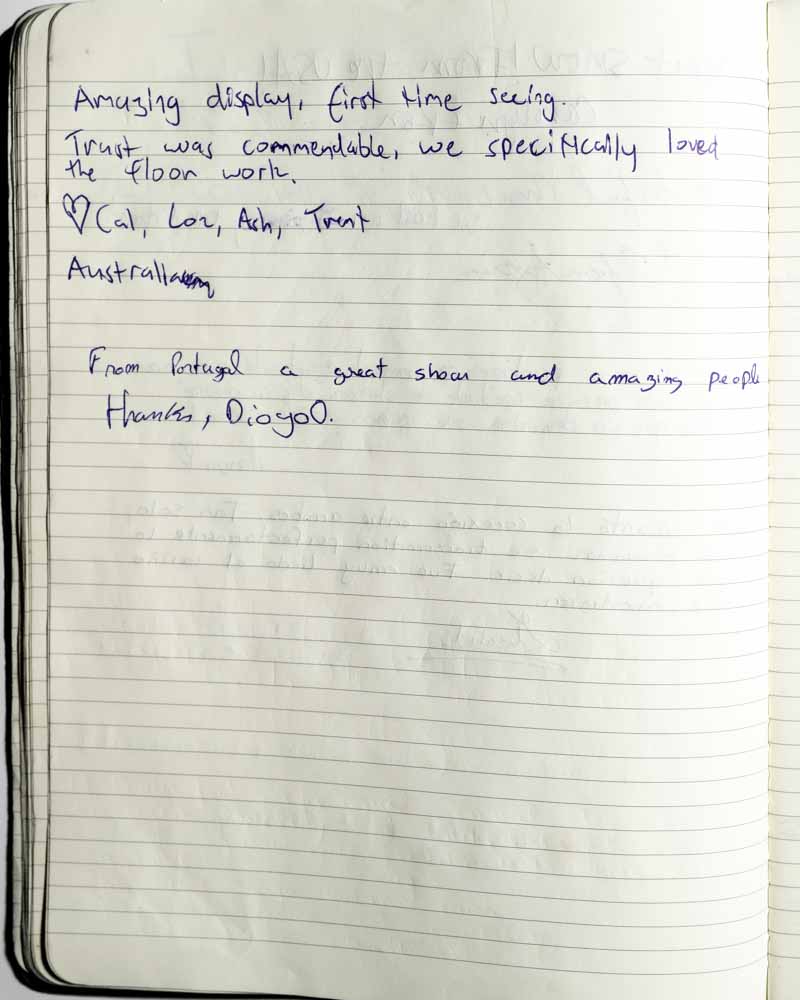 Amazing display, first time seeing.
Trust was commendable, we specifically loved
the floor work.
♡ Cal, Loz, Ash, Trent
Australia
From Portugal a great show and amazing people
Thanks, DiogoO.